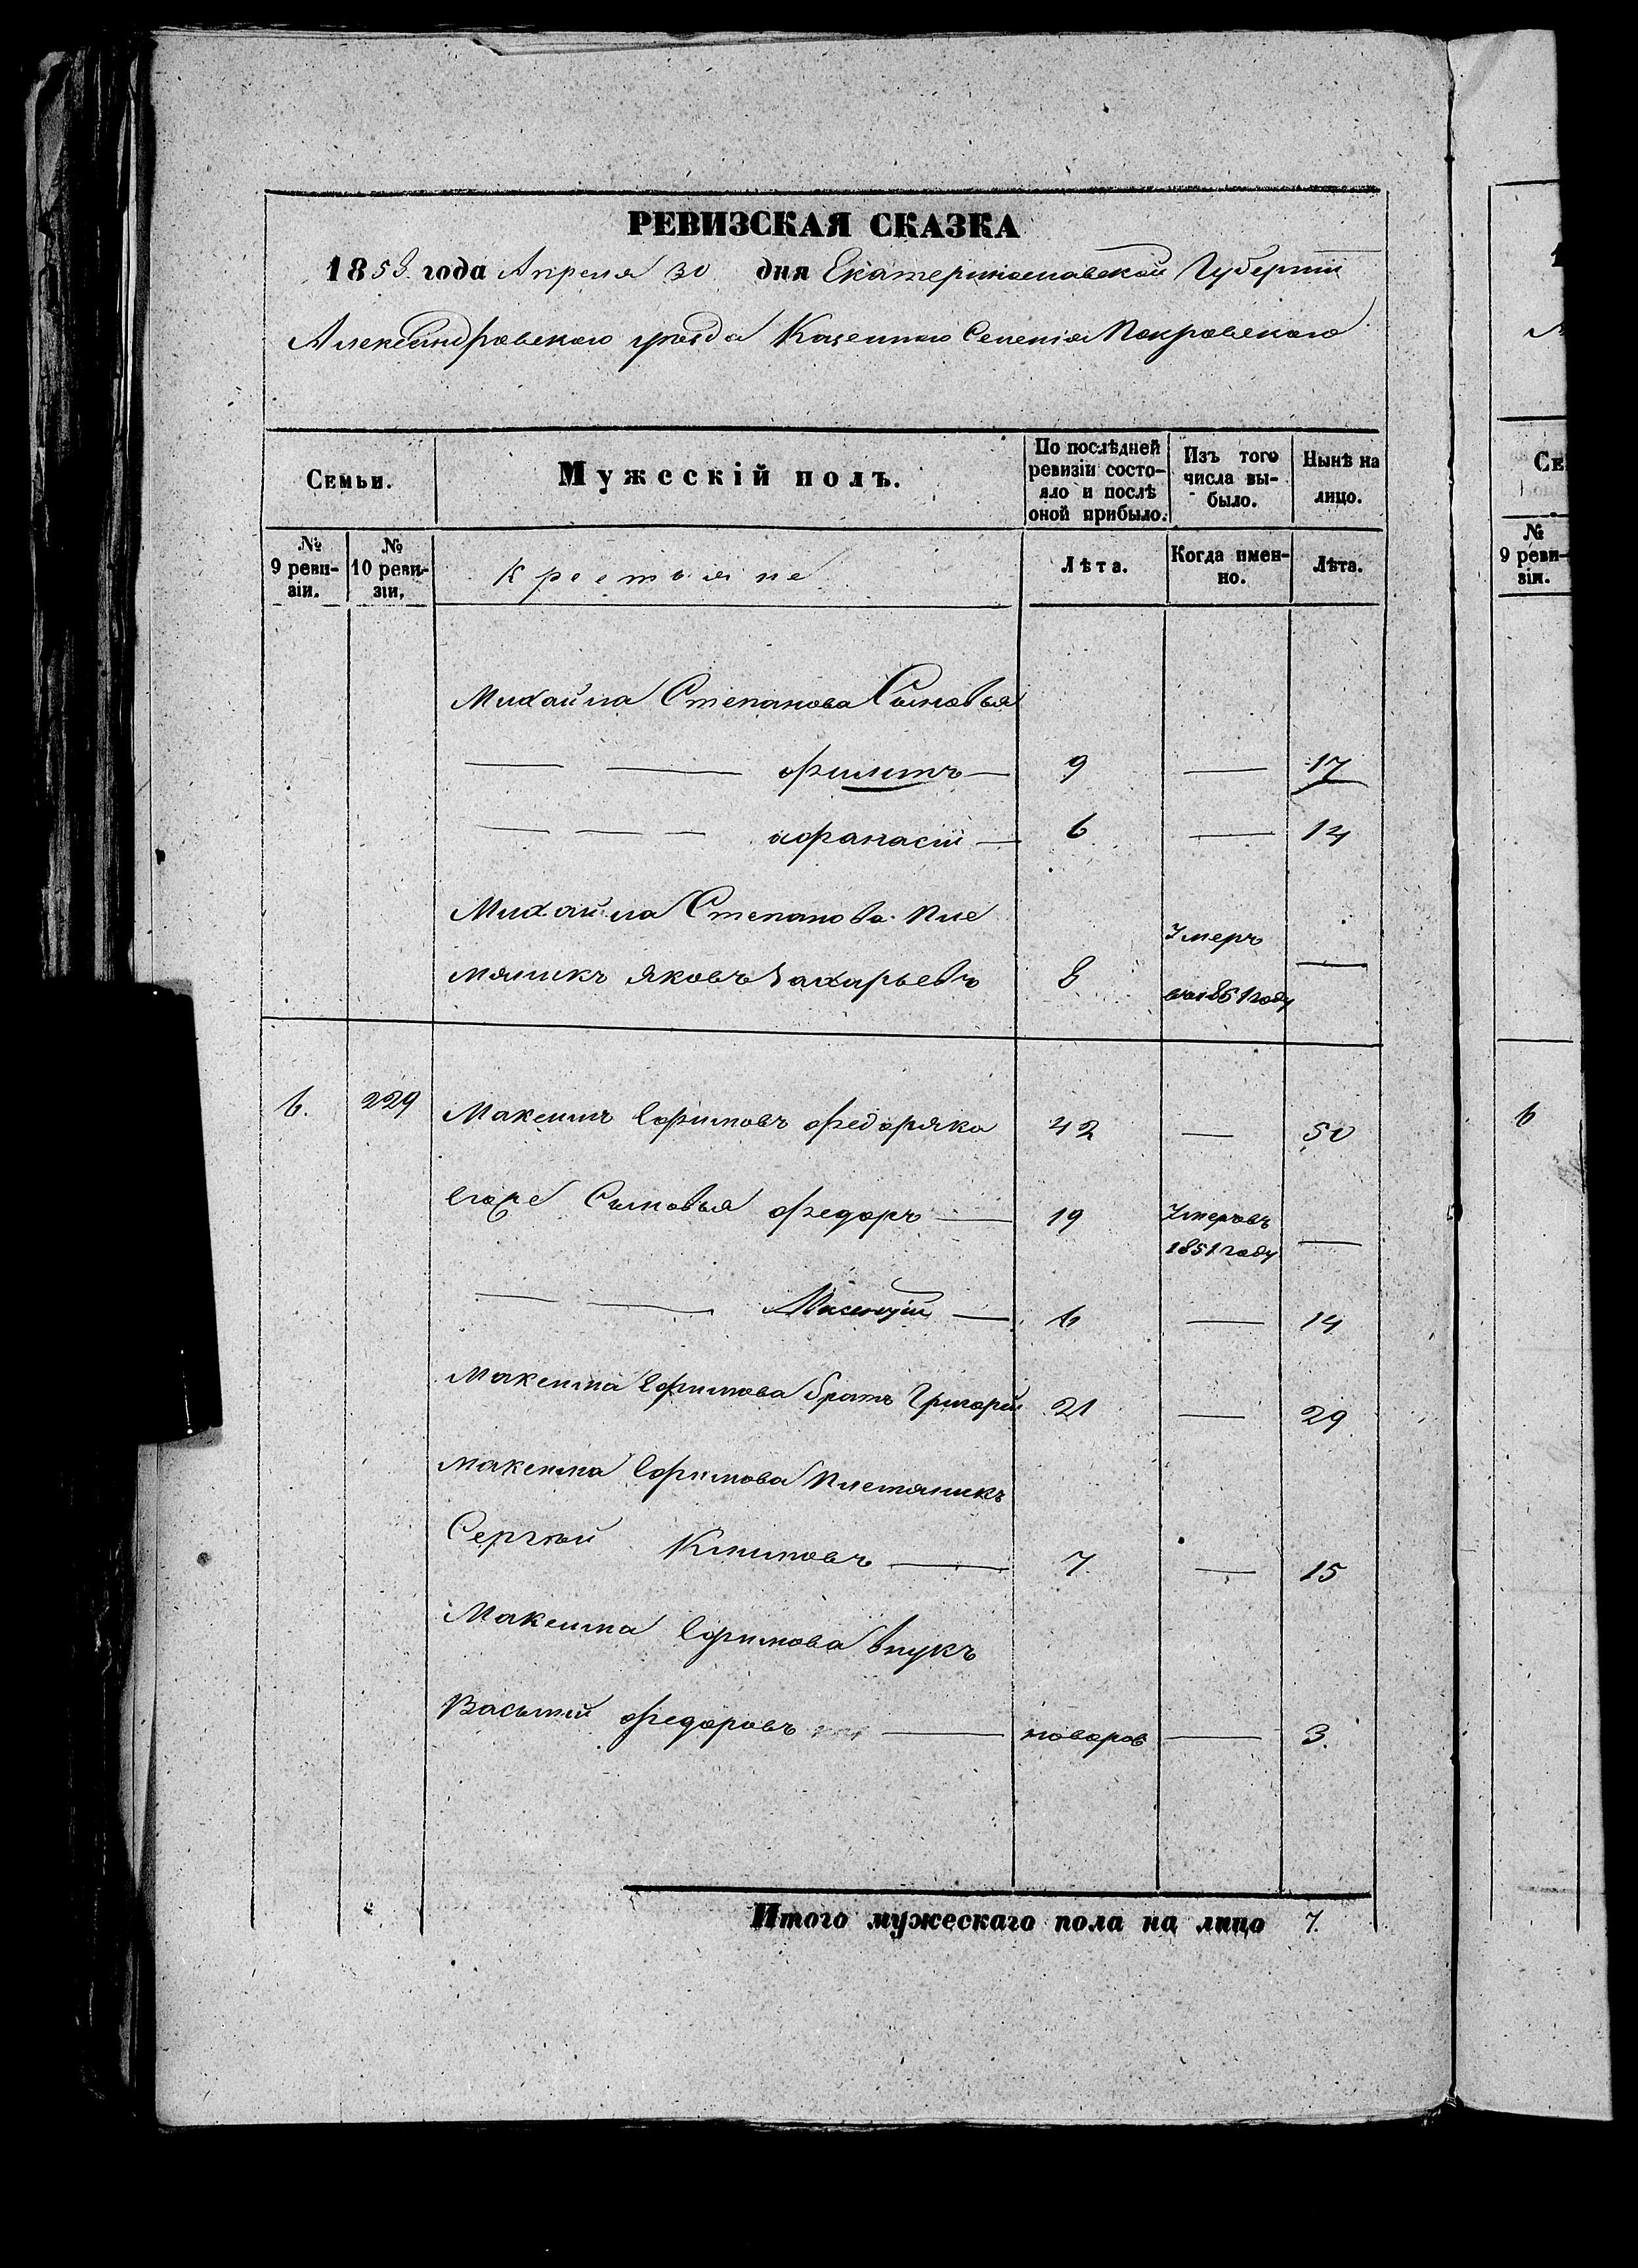 РЕВИЗСКАЯ СКАЗКА
1858 года Апреля 30 дня Екатеринославской Губернии
Александровского уезда Казенного Селения Покровского
Семьи.
Мужескій полъ.
По послѣдней ревизіи состо-
яло и послѣ
оной прибыло.
Изъ того
числа вы-
было.
Нынѣ на
лицо.
№
9 реви-
зіи.
№
10 реви-
зіи.
Крестьяне
Лѣта.
Когда имен-
но.
Лѣта.
Михайла Степанова Сыновья
— — филипъ — 9 — 17
— — — афанасій — 6 — 14
Михайла Степанова Пле
мяникъ Яковъ Захарьевъ 8 Умеръ —
въ 1851 году
6. 229 Максимъ Ефимовъ федоряка 42 — 50
Егоже Сыновья федоръ — 19 Умеръ въ —
1851 году
— — — 6 — 14
Максима Ефимова братъ Григорій 21 — 29
Максима Ефимова Племяникъ
Сергѣй Климовъ — 7. — 15
Максима Ефимова внукъ
Василій федоровъ — новорож — 3.
Итого мужескаго пола на лицо 7.
Се
№
9 реви-
зіи.
6